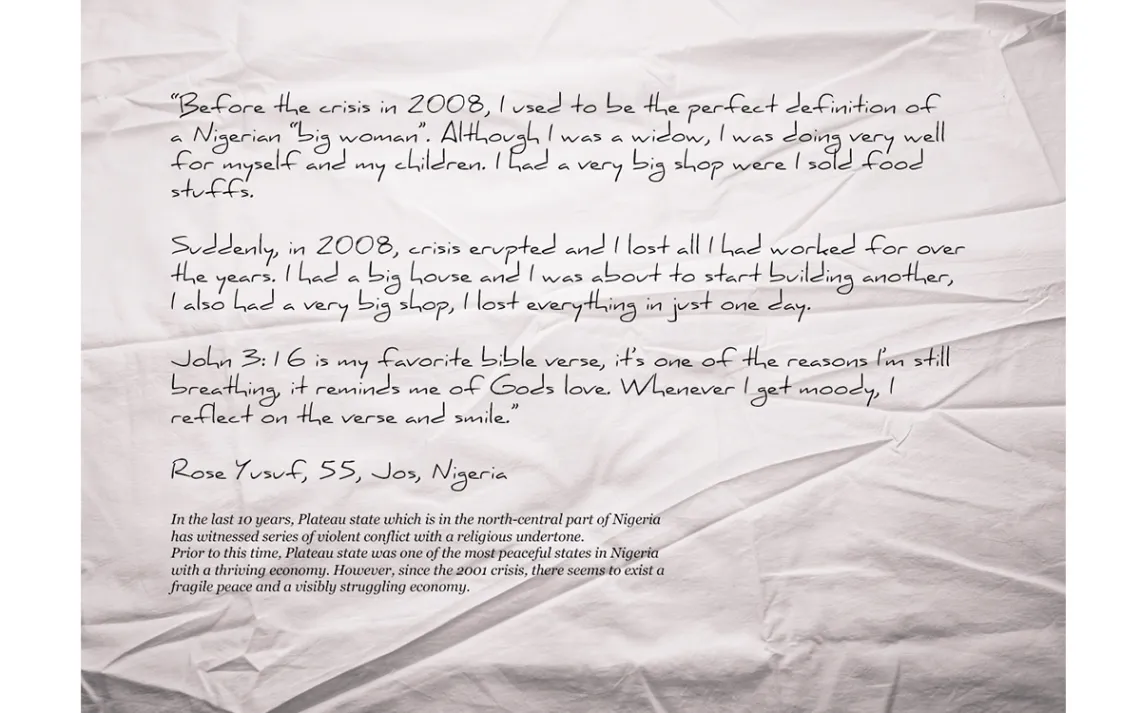 “Before the crisis in 2008, I used to be the perfect definition of
a Nigerian “big woman”. Although I was a widow, I was doing very well
for myself and my children. I had a very big shop were I sold food
stuffs.
Suddenly, in 2008, crisis erupted and I lost all I had worked for over
the years. I had a big house and I was about to start building another,
I also had a very big shop, I lost everything in just one day.
John 3:16 is my favorite bible verse, it’s one of the reasons I’m still
breathing, it reminds me of Gods love. Whenever I get moody, I
reflect on the verse and smile.”
Rose Yusuf, 55, Jos, Nigeria
In the last 10 years, Plateau state which is in the north-central part of Nigeria
has witnessed series of violent conflict with a religious undertone.
Prior to this time, Plateau state was one of the most peaceful states in Nigeria
with a thriving economy. However, since the 2001 crisis, there seems to exist a
fragile peace and a visibly struggling economy.